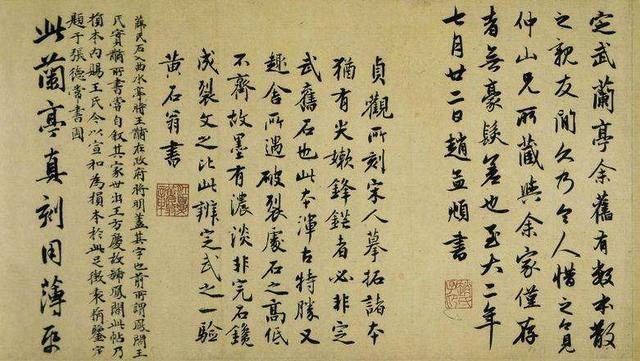 定武蘭亭余舊有數本散
之親友間久乃令人惜之今見
仲山兄所藏與余家僅存
者無豪髮差也至大二年
七月廿二日趙孟頫書
貞觀所刻宋人摹拓諸本
猶有尖嫩鋒鋩者必非定
武舊石也此本渾古特勝又
趣舍所遇破裂處石之高低
不齊故墨有濃淡非完石鐫
成裂文之比此辨定武之一驗
黃石翁書
薛氏石入曲水亭時王黼在政府將明蓋其字也前所謂鳳閣王
氏實黼所書嘗自叙其家世出王方慶故論鳳閣此帖乃
損本內賜王氏今以宣和為損本於此足徵
題于張德常書圃
此蘭亭真刻用薄